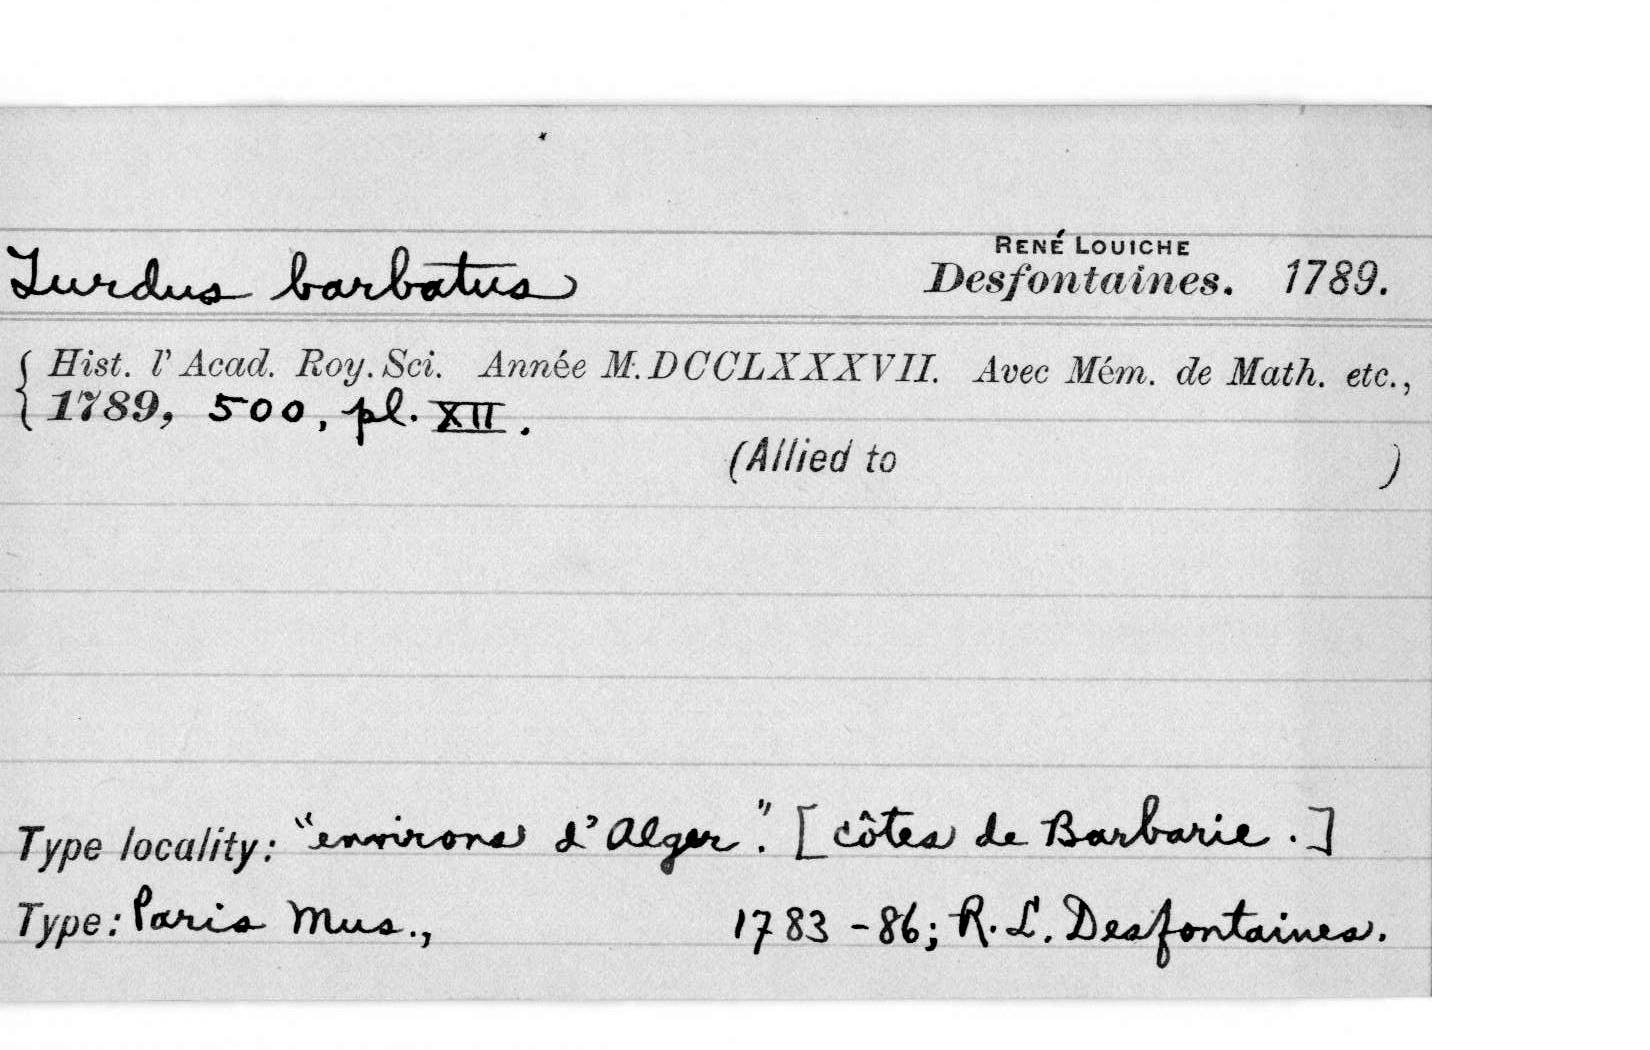 RENÉ LOUICHE
Turdus barbatus Desfontaines. 1789.
Hist. l'Acad. Roy. Sci. Année M.DCCLXXXVII. Avec Mém. de Math. etc.,
1789, 500, pl. XII.
(Allied to )
Type locality: "environs d'Alger". [côtes de Barbarie.]
Type: Paris Mus., 1783-86; R. L. Desfontaines.